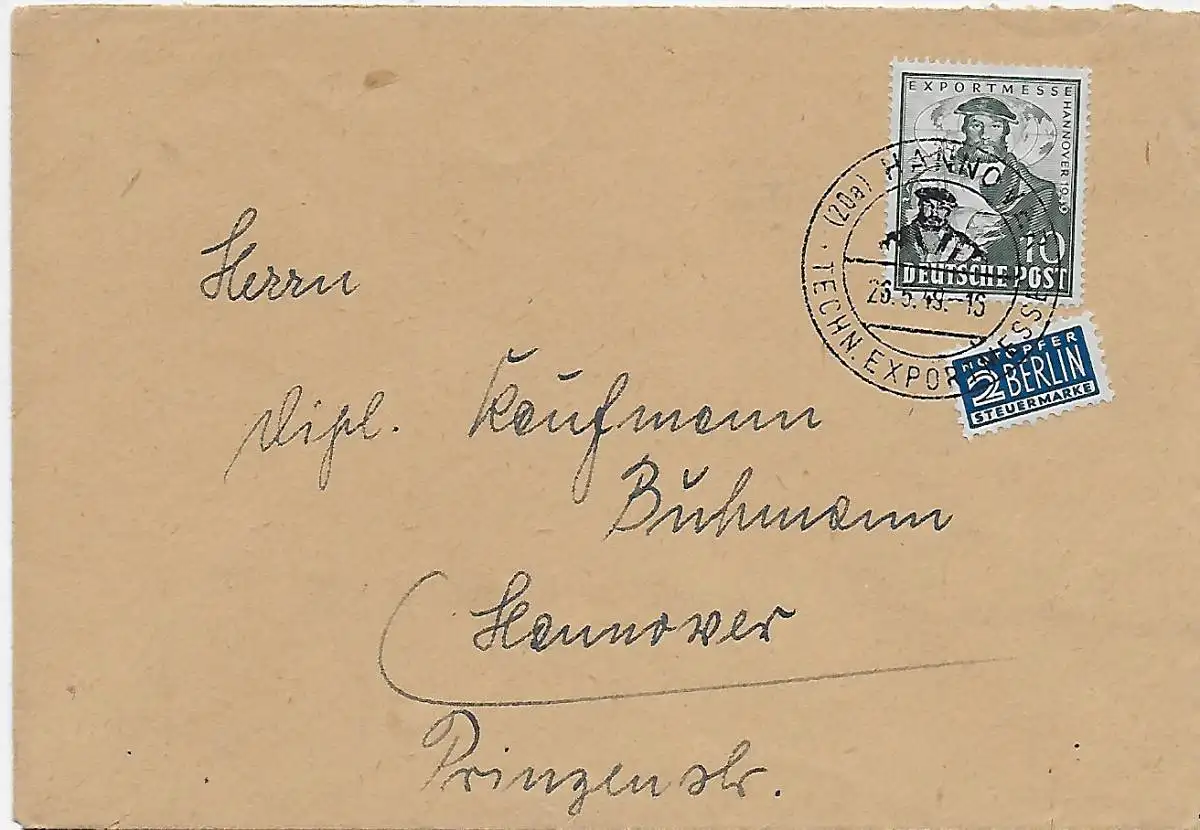 EXPORTMESSE HANNOVER 1949
10
DEUTSCHE POST
(20a) HANNOVER
26.5.49.-16
· TECHN. EXPORTMESSE
NOTOPFER
2 BERLIN
STEUERMARKE
Herrn
Dipl. Kaufmann
Buhmann
Hannover
Prinzenstr.